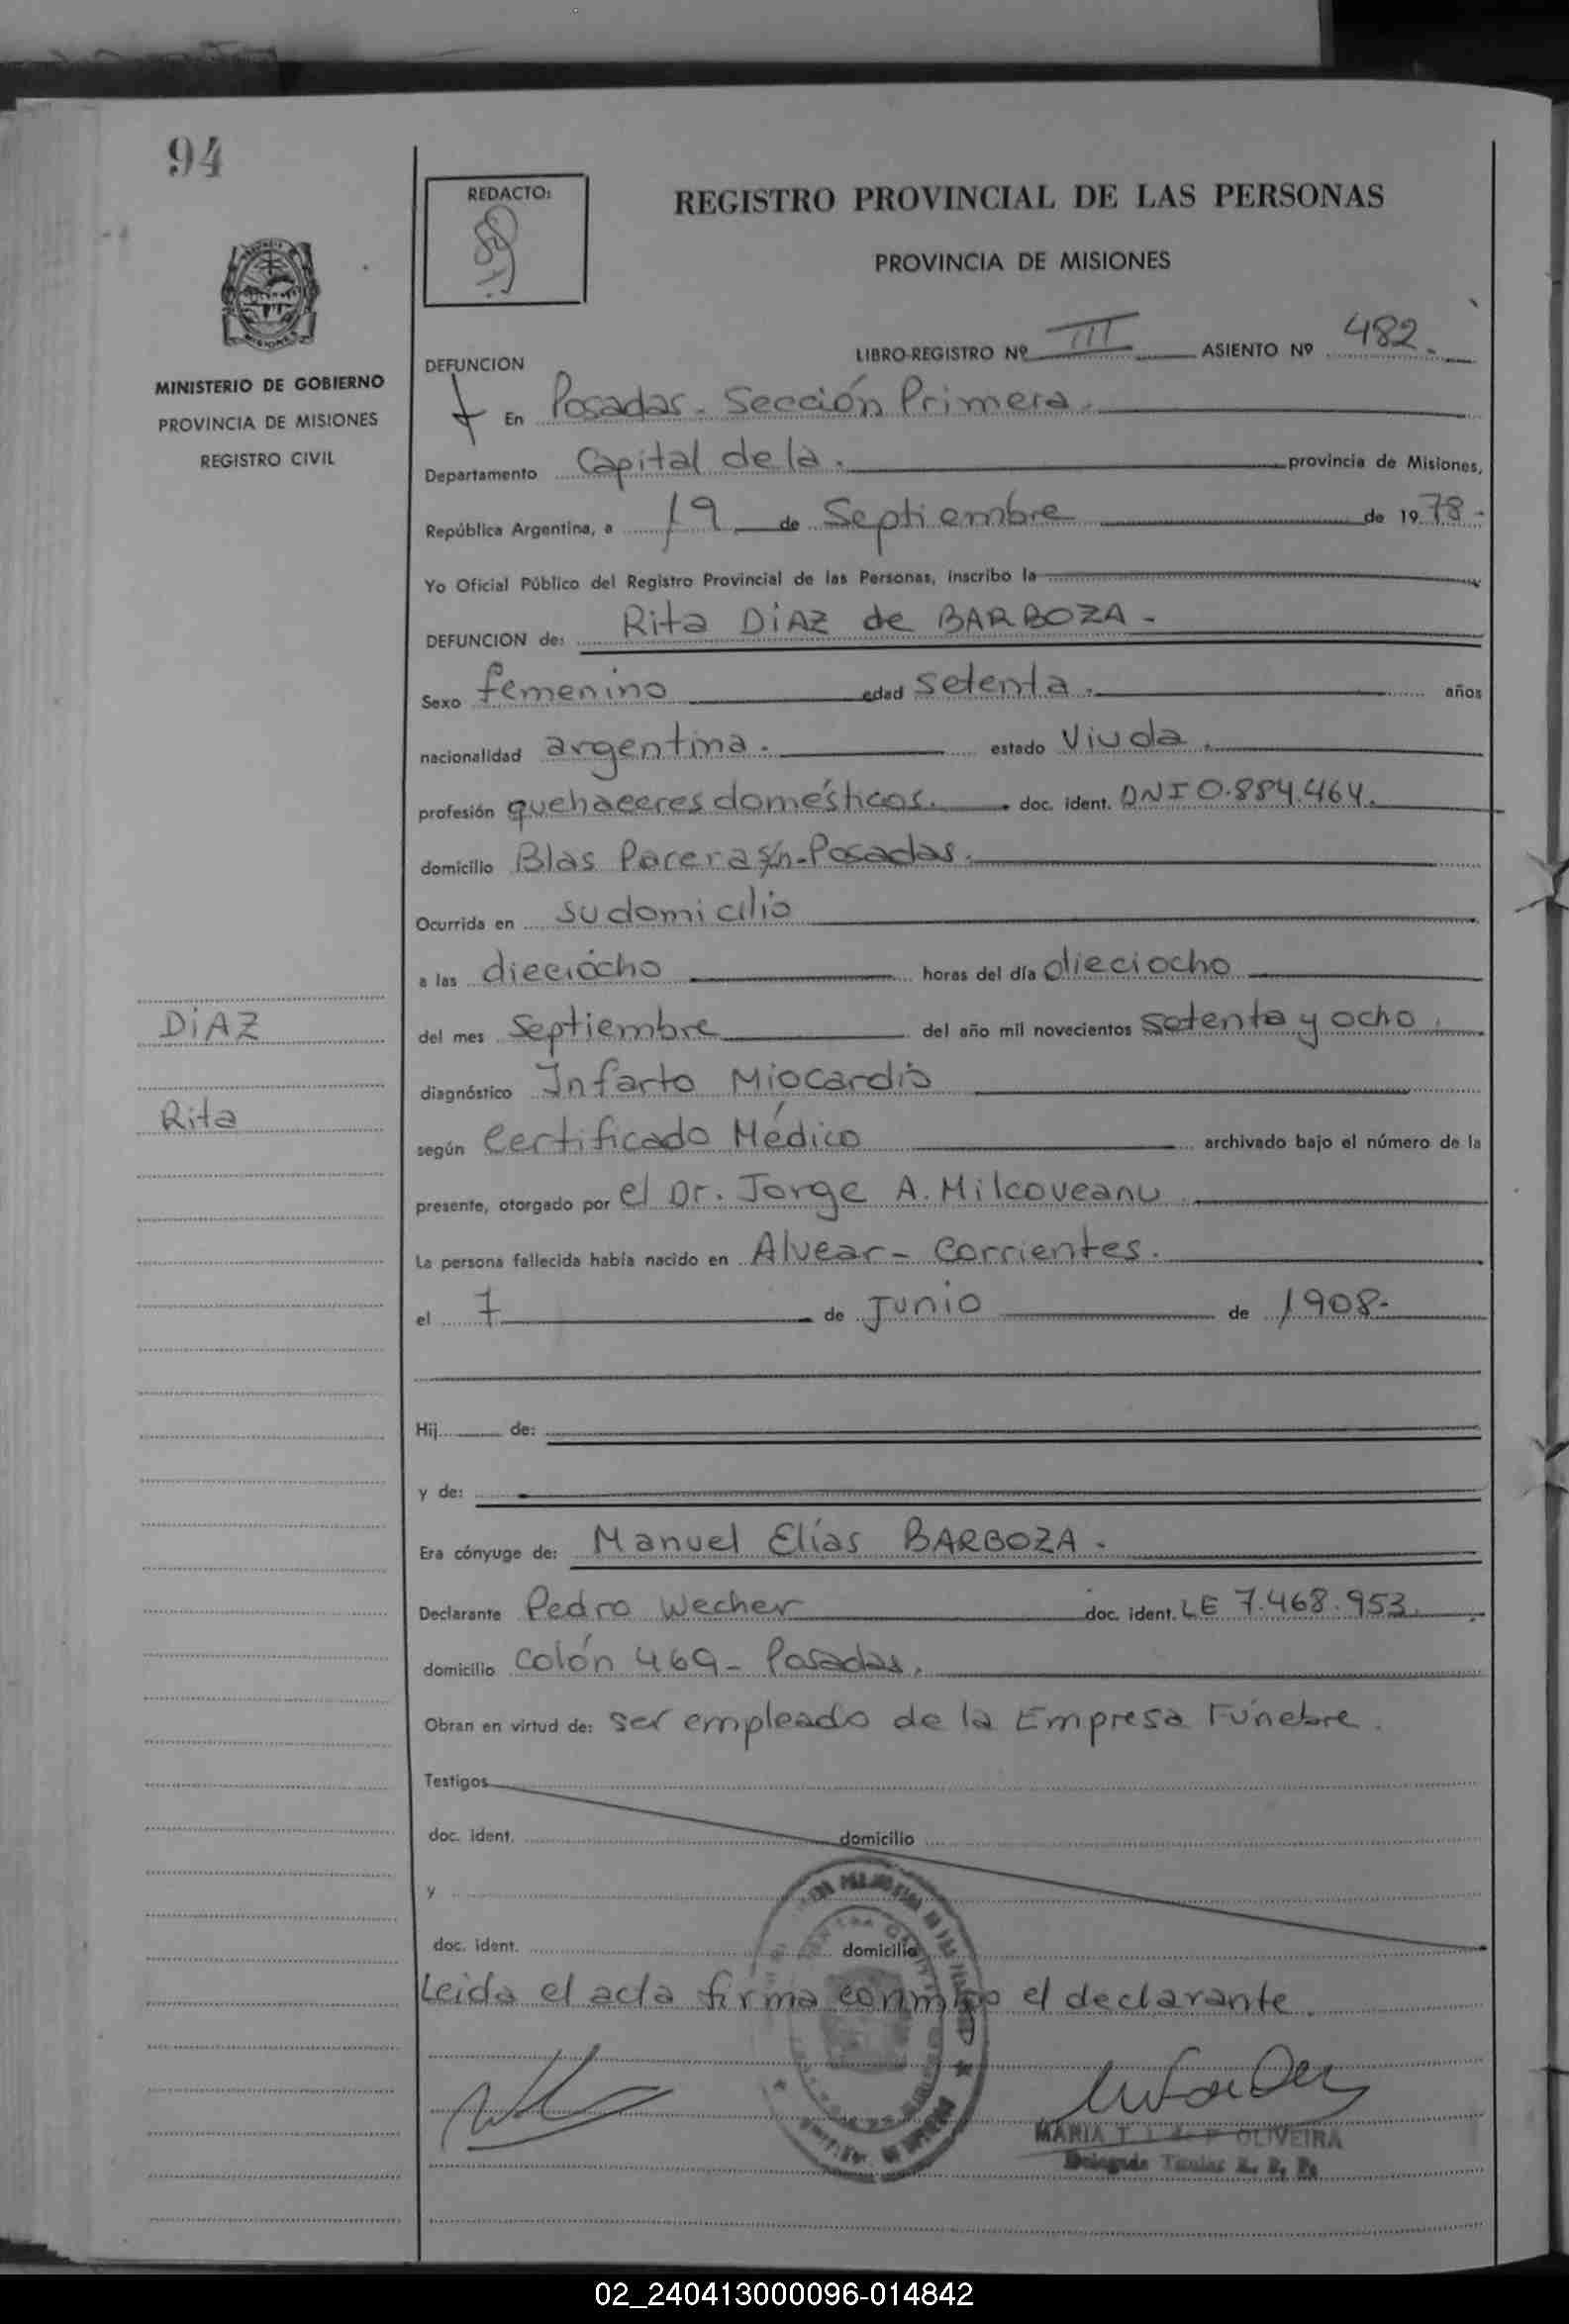 94
REDACTO:
REGISTRO PROVINCIAL DE LAS PERSONAS
PROVINCIA DE MISIONES
MINISTERIO DE GOBIERNO
PROVINCIA DE MISIONES
REGISTRO CIVIL
LIBRO-REGISTRO Nº III ASIENTO Nº 482.
DEFUNCION
En Posadas. Sección Primera.
Departamento Capital de la. provincia de Misiones,
República Argentina, a 19 de Septiembre de 1978-
Yo Oficial Público del Registro Provincial de las Personas, inscribo la
DEFUNCION de: Rita DiAZ de BARBOZA-
Sexo femenino edad setenta. años
nacionalidad argentina. estado Viuda.
profesión quehaceres domésticos. doc. ident. DNI 0.884.464.
domicilio Blas Parera s/n-Posadas.
Ocurrida en su domicilio
a las dieciocho horas del día dieciocho
del mes Septiembre del año mil novecientos setenta y ocho.
diagnóstico Infarto Miocardio
según Certificado Médico archivado bajo el número de la
presente, otorgado por el Dr. Jorge A. Milcoveanu
La persona fallecida había nacido en Alvear- Corrientes.
el 7 de Junio de 1908-
Hij de:
y de:
Era cónyuge de: Manuel Elías BARBOZA-
Declarante Pedro Wecher doc. ident. LE 7.468.953.
domicilio Colón 469- Posadas.
Obran en virtud de: ser empleado de la Empresa Fúnebre.
Testigos
doc. ident. domicilio
y
doc. ident. domicilio
Leida el acta firma conmigo el declarante.
MARIA T. OLIVEIRA
Delegada Titular R. P. P.
DiAZ
Rita
02_240413000096-014842